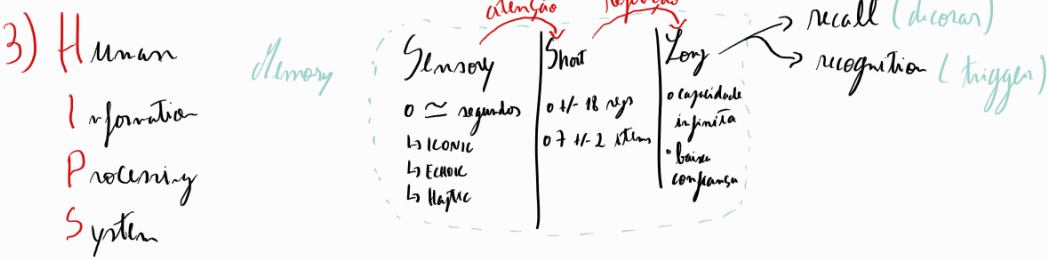 3) Human
Information
Processing
System
Memory
atenção
Sensory
o ≃ segundos
↳ ICONIC
↳ ECHOIC
↳ Haptic
Short
o +/- 18 segs
o 7 +/- 2 items
Long
o capacidade
infinita
• baixa
confiança
recall (decorar)
recognition (trigger)